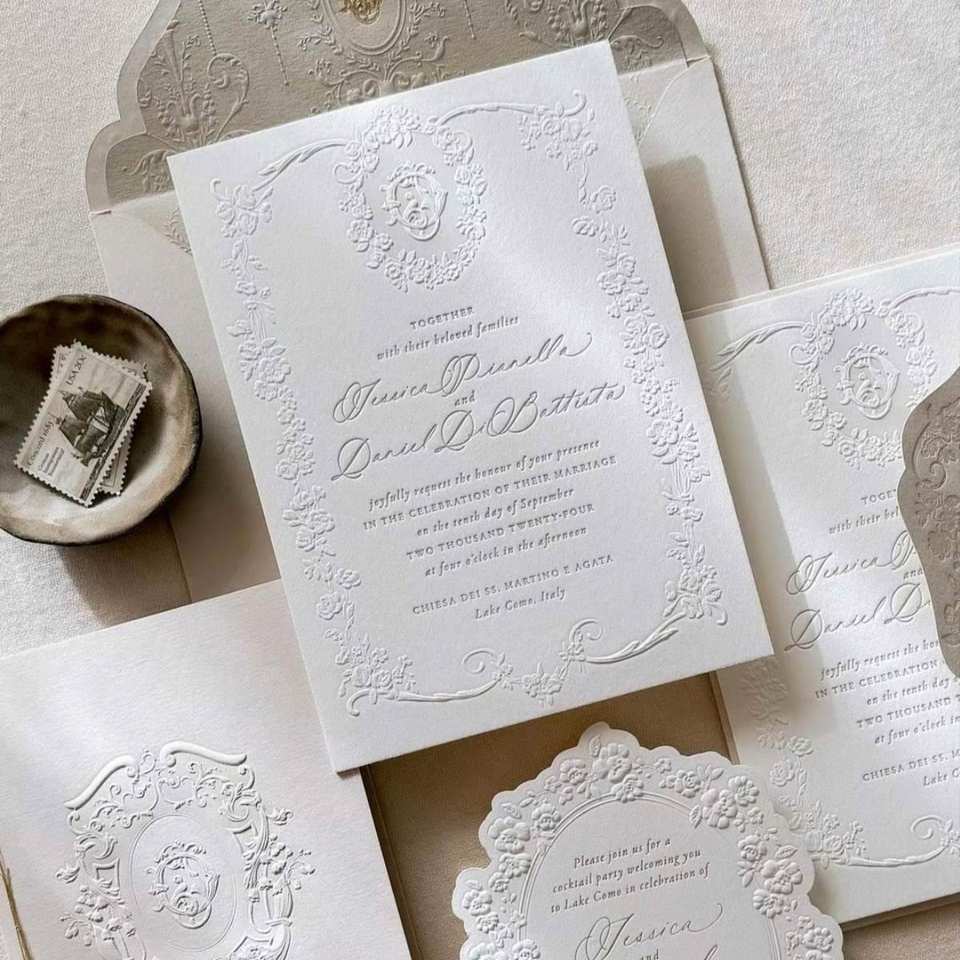 TOGETHER
with their beloved families
Jessica Pianella
and
Daniel Di Battista
joyfully request the honour of your presence
IN THE CELEBRATION OF THEIR MARRIAGE
on the tenth day of September
TWO THOUSAND TWENTY-FOUR
at four o'clock in the afternoon
CHIESA DEI SS. MARTINO E AGATA
Lake Como, Italy
USA 20c
TOGET
with their belov
Jessica P
and
Daniel D
joyfully request the hono
IN THE CELEBRATION
on the tenth day
TWO THOUSAND T
at four o'clock in
CHIESA DEI SS. MA
Lake Com
Please join us for a
cocktail party welcoming you
to Lake Como in celebration of
Jessica